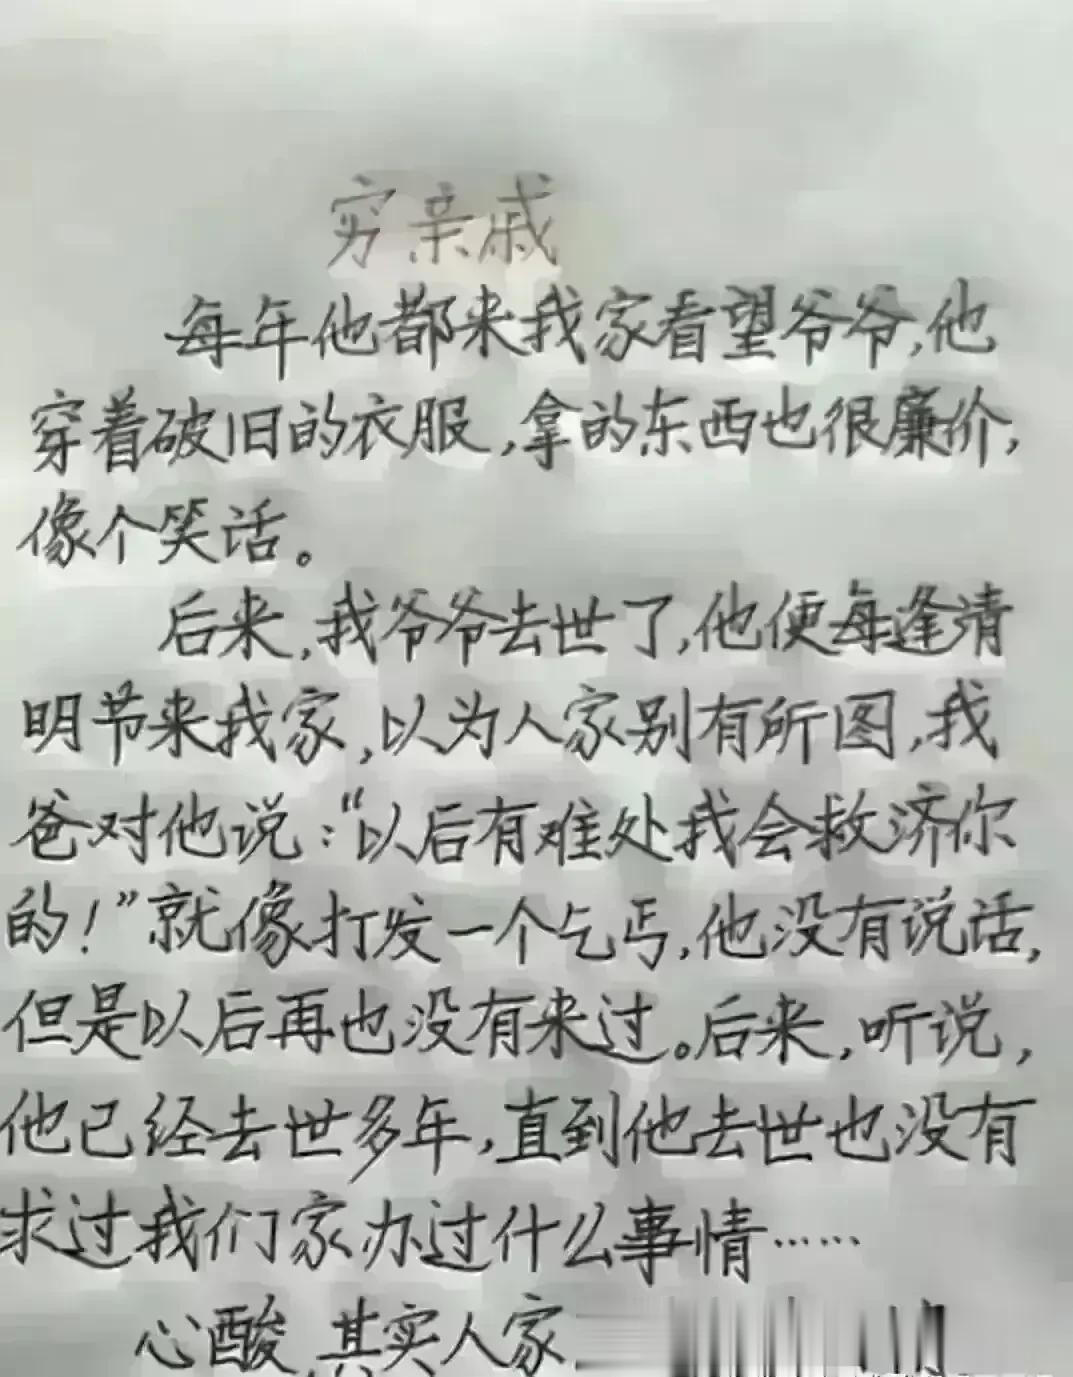 穷亲戚
每年他都来我家看望爷爷,他
穿着破旧的衣服,拿的东西也很廉价,
像个笑话。
后来,我爷爷去世了,他便每逢清
明节来我家,以为人家别有所图,我
爸对他说:“以后有难处我会救济你
的!”就像打发一个乞丐,他没有说话,
但是以后再也没有来过。后来,听说,
他已经去世多年,直到他去世也没有
求过我们家办过什么事情……
心酸,其实人家